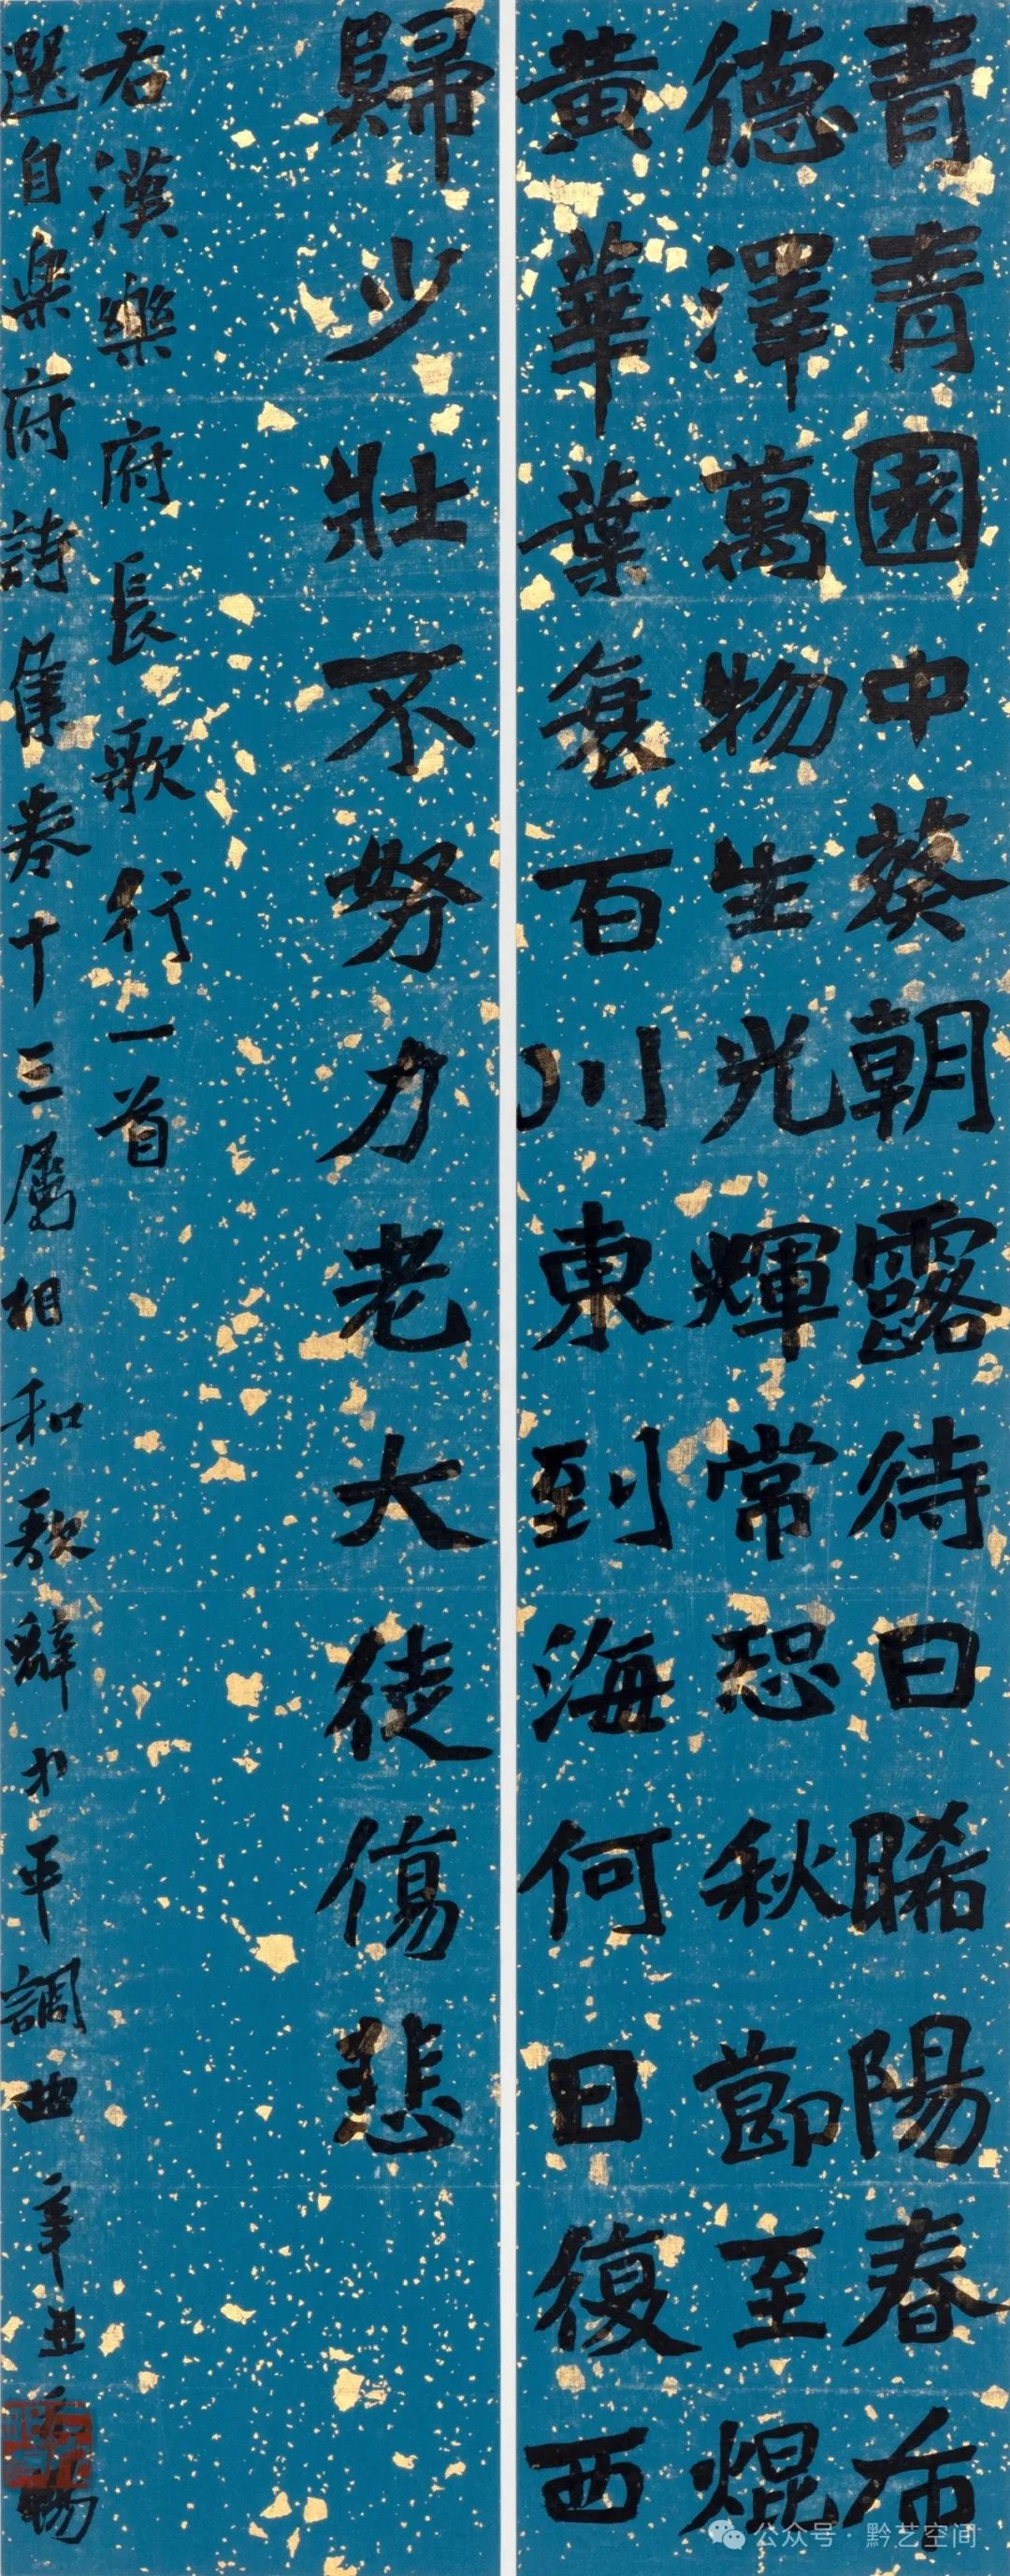 青青園中葵朝露待日晞陽春布
德澤萬物生光輝常恐秋節至焜
黃華葉衰百川東到海何日復西
歸少壯不努力老大徒傷悲
右漢樂府長歌行一首
選自樂府詩集卷十三屬相和歌辭中平調曲辛丑
公众号 · 黔艺空间